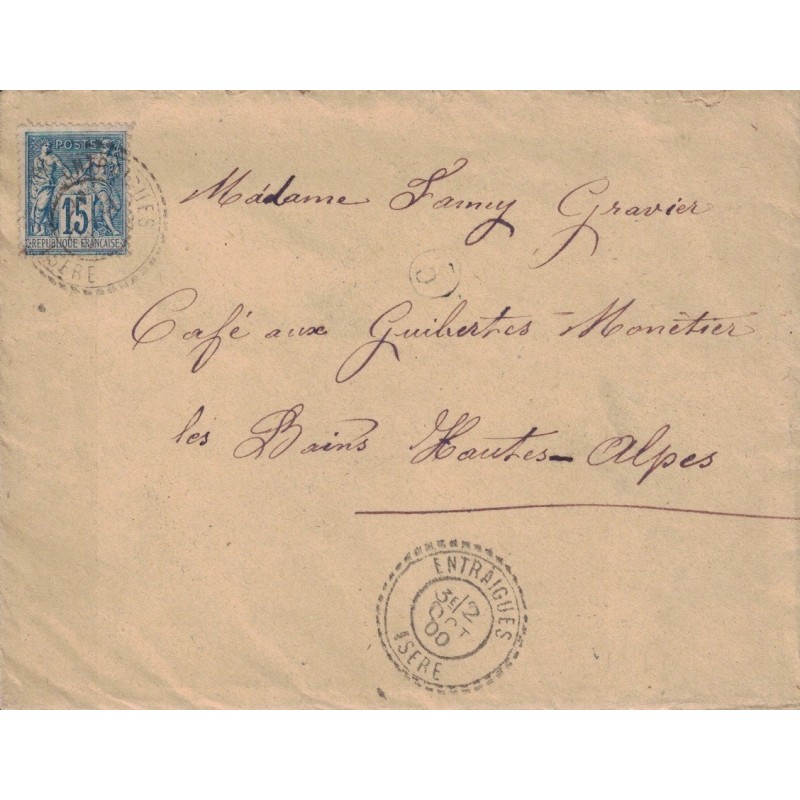 POSTES
15
REPUBLIQUE FRANÇAISE
ISERE
Madame Fanny Gravier
5
Café aux Guibertes - Monêtier
les Bains Hautes-Alpes
ENTRAIGUES
3E/2
OCT
00
ISERE